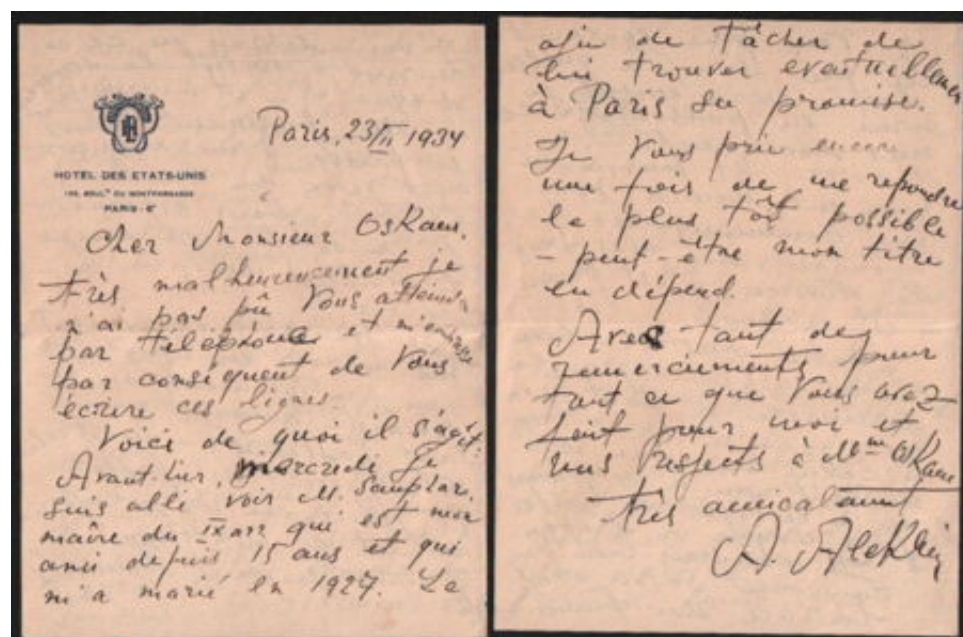 HOTEL DES ETATS-UNIS
135, BOUL.D DU MONTPARNASSE
PARIS - 6e
Paris, 23/II 1934
Cher Monsieur Oskam,
très malheureucement je
n'ai pas pû Vous atteindre
par téléphone et m'empresse
par conséquent de Vous
écrire ces lignes.
Voici de quoi il s'agit:
Avant-hier, mercredi je
suis allé voir M.
maire du IX arr qui est mon
ami depuis 15 ans et qui
m'a marié en 1927. Le
afin de tâcher de
lui trouver
à Paris
Je Vous prie encor
une fois de me repondre
le plus tôt possible
- peut-être mon titre
en dépend.
Avec tant de
remerciements pour
tout ce que Vous avez
fait pour moi et
mes respects à Mme Oskam
très amicalement
A. Alekhin